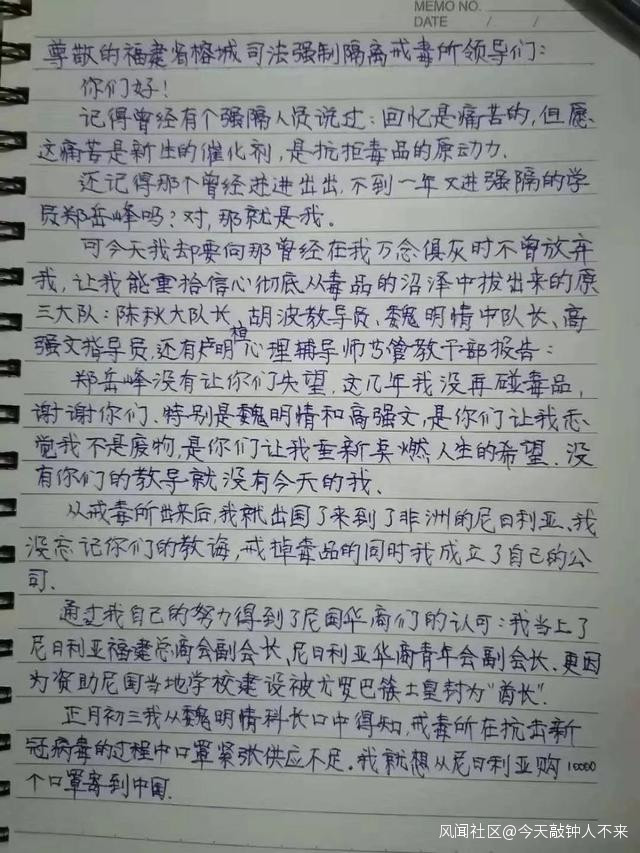 MEMO NO.
DATE / /
尊敬的福建省榕城司法强制隔离戒毒所领导们：
你们好！
记得曾经有个强隔人员说过：回忆是痛苦的，但愿
这痛苦是新生的催化剂，是抗拒毒品的原动力.
还记得那个曾经进进出出，不到一年又进强隔的学
员郑岳峰吗？对，那就是我。
可今天我却要向那曾经在我万念俱灰时不曾放弃
我，让我能重拾信心彻底从毒品的沼泽中拔出来的原
三大队：陈秋大队长、胡波教导员、魏明情中队长、高
强文指导员，还有卢明桓心理辅导师等管教干部报告：
郑岳峰没有让你们失望，这几年我没再碰毒品，
谢谢你们、特别是魏明情和高强文，是你们让我感
觉我不是废物，是你们让我重新点燃人生的希望．没
有你们的教导就没有今天的我、
从戒毒所出来后，我就出国了来到了非洲的尼日利亚、我
没忘记你们的教诲，戒掉毒品的同时我成立了自己的公
司．
通过我自己的努力得到了尼国华商们的认可：我当上了
尼日利亚福建总商会副会长、尼日利亚华商青年会副会长、更因
为资助尼国当地学校建设被尤罗巴族土皇封为“酋长”．
正月初三我从魏明情科长口中得知，戒毒所在抗击新
冠病毒的过程中口罩紧张供应不足．我就想从尼日利亚购10000
个口罩寄到中国．
风闻社区@今天敲钟人不来